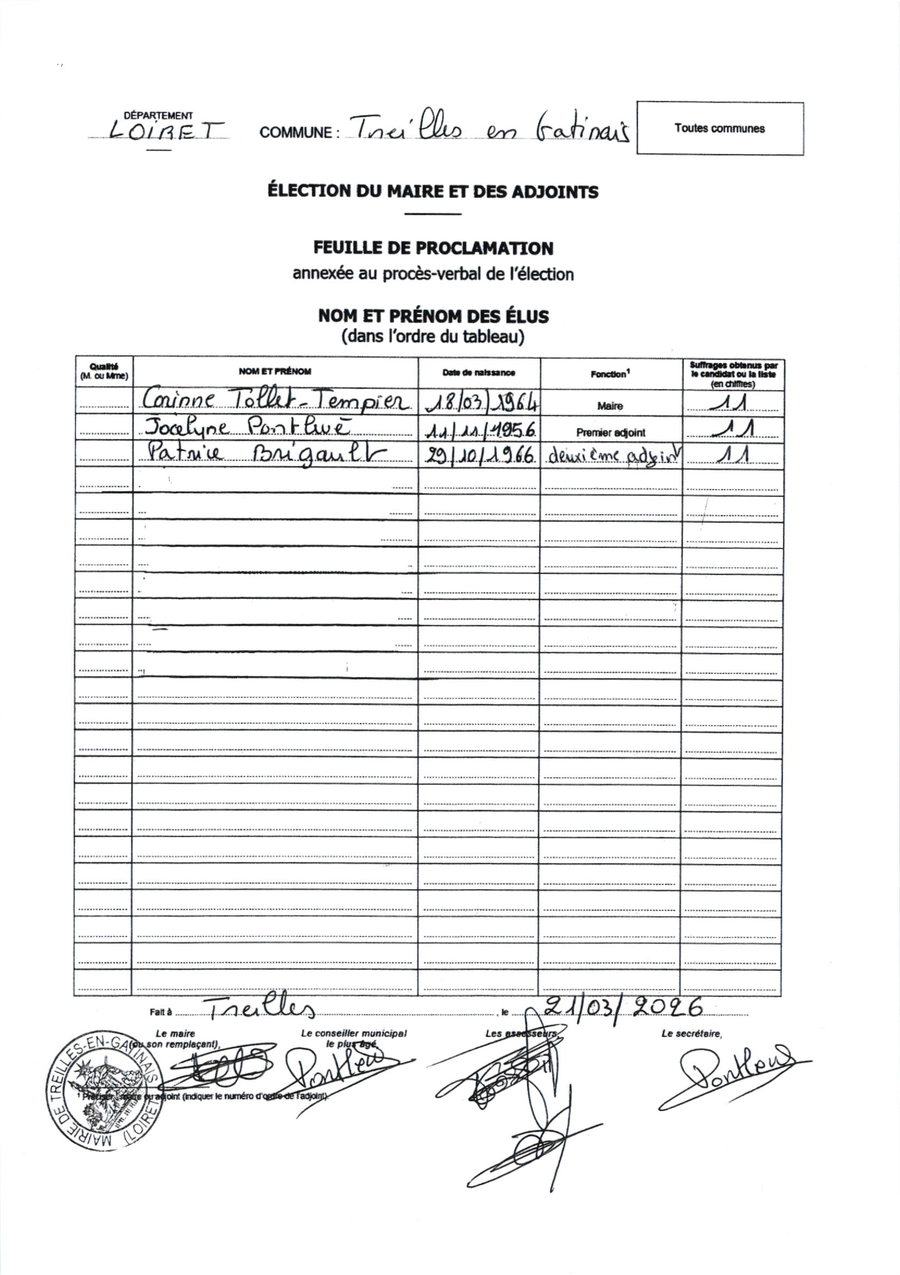 DÉPARTEMENT
LOIRET
COMMUNE : Treilles en Gatinais
Toutes communes
ÉLECTION DU MAIRE ET DES ADJOINTS
FEUILLE DE PROCLAMATION
annexée au procès-verbal de l'élection
NOM ET PRÉNOM DES ÉLUS
(dans l'ordre du tableau)
Qualité (M. ou Mme) NOM ET PRÉNOM Date de naissance Fonction¹ Suffrages obtenus par le candidat ou la liste (en chiffres)
Corinne Tollet-Tempier 18/03/1964 Maire 11
Jocelyne Ponthuè 11/11/1956 Premier adjoint 11
Patrice Brigault 29/10/1966 deuxième adjoint 11
Fait à Treilles, le 21/03/2026
Le maire (ou son remplaçant), Le conseiller municipal le plus âgé, Les assesseurs, Le secrétaire,
¹ Préciser : maire ou adjoint (indiquer le numéro d'ordre de l'adjoint).
MAIRIE DE TREILLES-EN-GATINAIS (LOIRET)